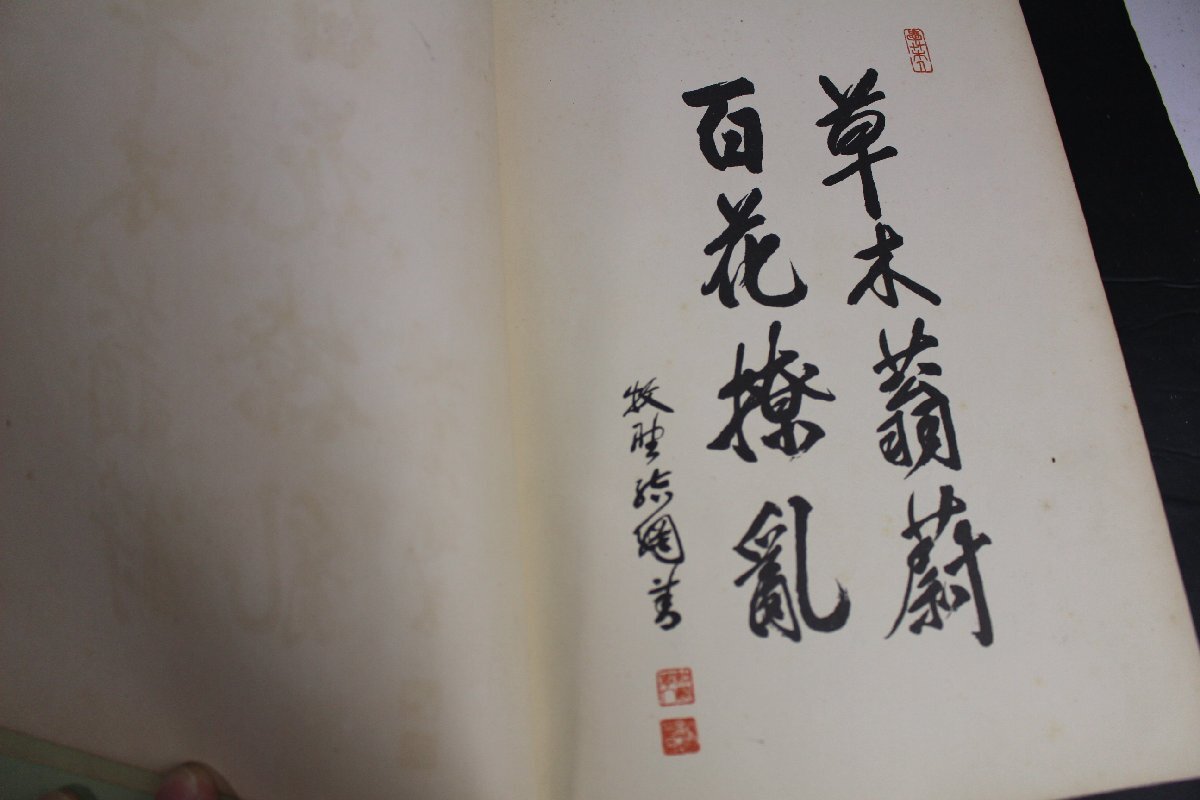 草木蓊蔚
百花撩亂
牧野結網書